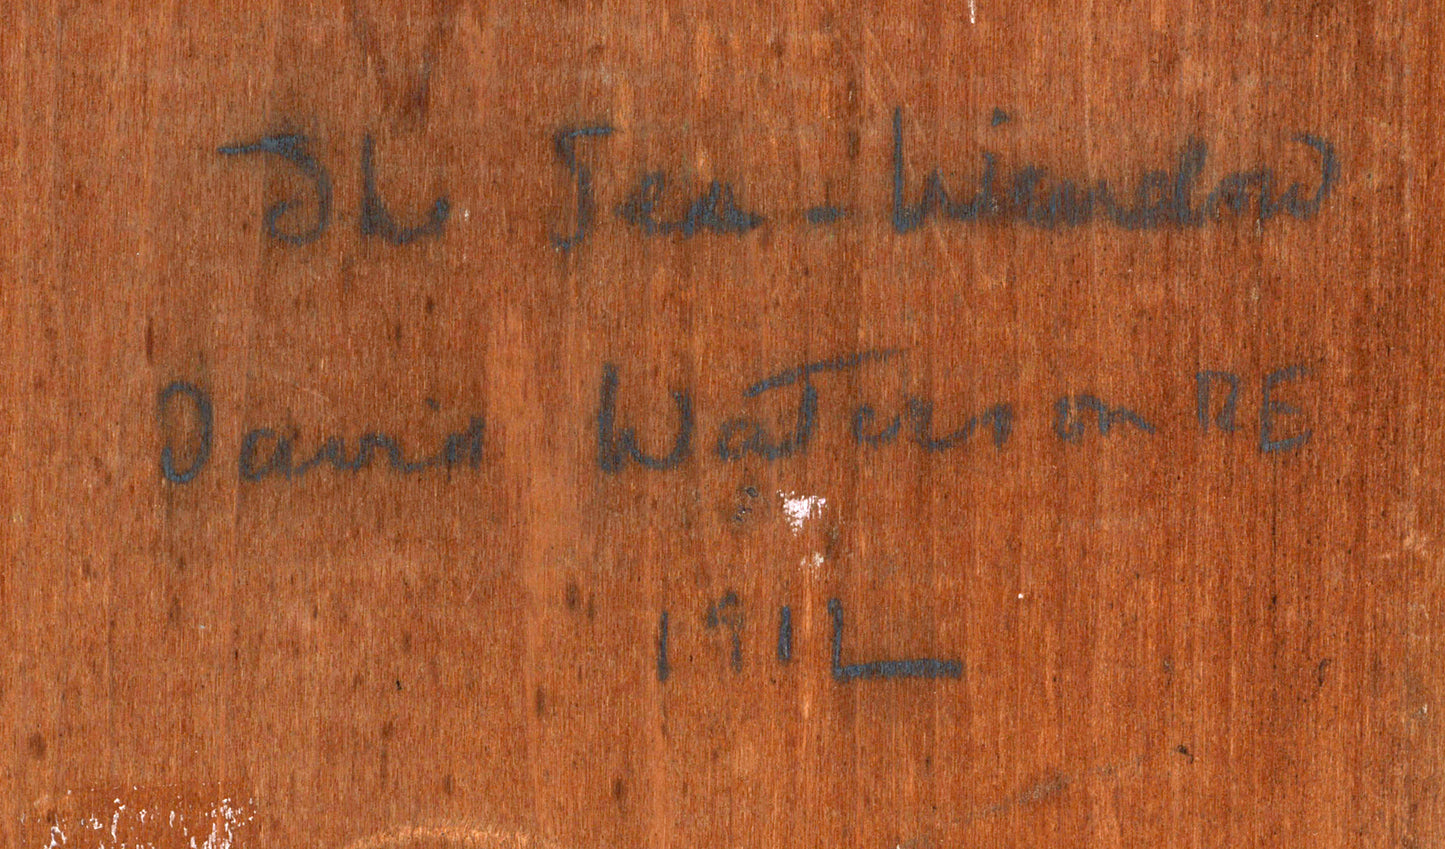 The Sea-Window
David Waterson RE
1912